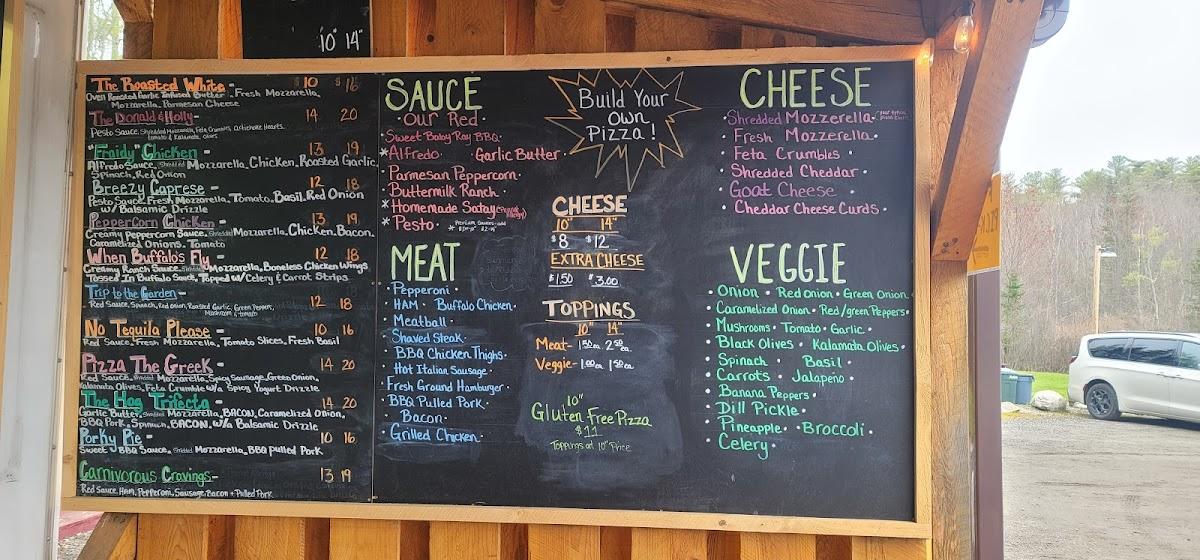 10" 14"
The Roasted White - $10 $16
Oven Roasted Garlic Infused Butter, Fresh Mozzarella,
Mozzarella, Parmesan Cheese
The Donald & Holly - 14 20
Pesto Sauce, Shredded Mozzarella, Feta Crumbles, Artichoke Hearts,
tomato & Kalamata olives
"Fraidy" Chicken 13 19
Alfredo Sauce, Shredded Mozzarella, Chicken, Roasted Garlic,
Spinach, Red Onion
Breezy Caprese - 12 18
Pesto Sauce, Fresh Mozzarella, Tomato, Basil, Red Onion
w/ Balsamic Drizzle
Peppercorn Chicken - 13 19
Creamy Peppercorn Sauce, Shredded Mozzarella, Chicken, Bacon,
Caramelized Onions, Tomato
When Buffalo's Fly - 12 18
Creamy Ranch Sauce, Shredded Mozzarella, Boneless Chicken Wings
Tossed In Buffalo Sauce, Topped w/ Celery & Carrot Strips
Trip to the Garden - 12 18
Red Sauce, Spinach, Red onion, Roasted Garlic, Green Peppers,
Mushroom & tomato
No Tequila Please - 10 16
Red Sauce, Fresh Mozzarella, Tomato Slices, Fresh Basil
Pizza The Greek - 14 20
Red Sauce, Shredded Mozzarella, Spicy Sausage, Green Onion,
Kalamata Olives, Feta Crumble w/a Spicy Yogurt Drizzle
The Hog Trifecta 14 20
Garlic Butter, Shredded Mozzarella, BACON, Caramelized Onion,
BBQ Pork, Spinach, BACON, w/a Balsamic Drizzle
Porky Pie - 10 16
Sweet BBQ Sauce, Shredded Mozzarella, BBQ pulled Pork
Carnivorous Cravings - 13 19
Red Sauce, Ham, Pepperoni, Sausage, Bacon + Pulled Pork
SAUCE
• Our Red •
• Sweet Baby Ray BBQ •
* Alfredo • Garlic Butter •
• Parmesan Peppercorn •
• Buttermilk Ranch •
* Homemade Satay
* Pesto •
MEAT
• Pepperoni •
• HAM • Buffalo Chicken •
• Meatball •
• Shaved Steak •
• BBQ Chicken Thighs •
• Hot Italian Sausage •
• Fresh Ground Hamburger •
• BBQ Pulled Pork •
• Bacon •
• Grilled Chicken •
Build Your
Own
Pizza!
CHEESE
10" 14"
$8 $12
EXTRA CHEESE
$1.50 $3.00
TOPPINGS
10" 14"
Meat - 1.50 ea 2.50 ea
Veggie - 1.00 ea 1.50 ea
10"
Gluten Free Pizza
$11
Toppings at 10" Price
CHEESE
• Shredded Mozzerella •
• Fresh Mozzerella •
• Feta Crumbles •
• Shredded Cheddar •
• Goat Cheese •
• Cheddar Cheese Curds •
VEGGIE
• Onion • Red onion • Green Onion
• Caramelized Onion • Red/green Peppers •
• Mushrooms • Tomato • Garlic •
• Black Olives • Kalamata Olives •
• Spinach • Basil •
• Carrots • Jalapeño •
• Banana Peppers •
• Dill Pickle •
• Pineapple • Broccoli •
• Celery •